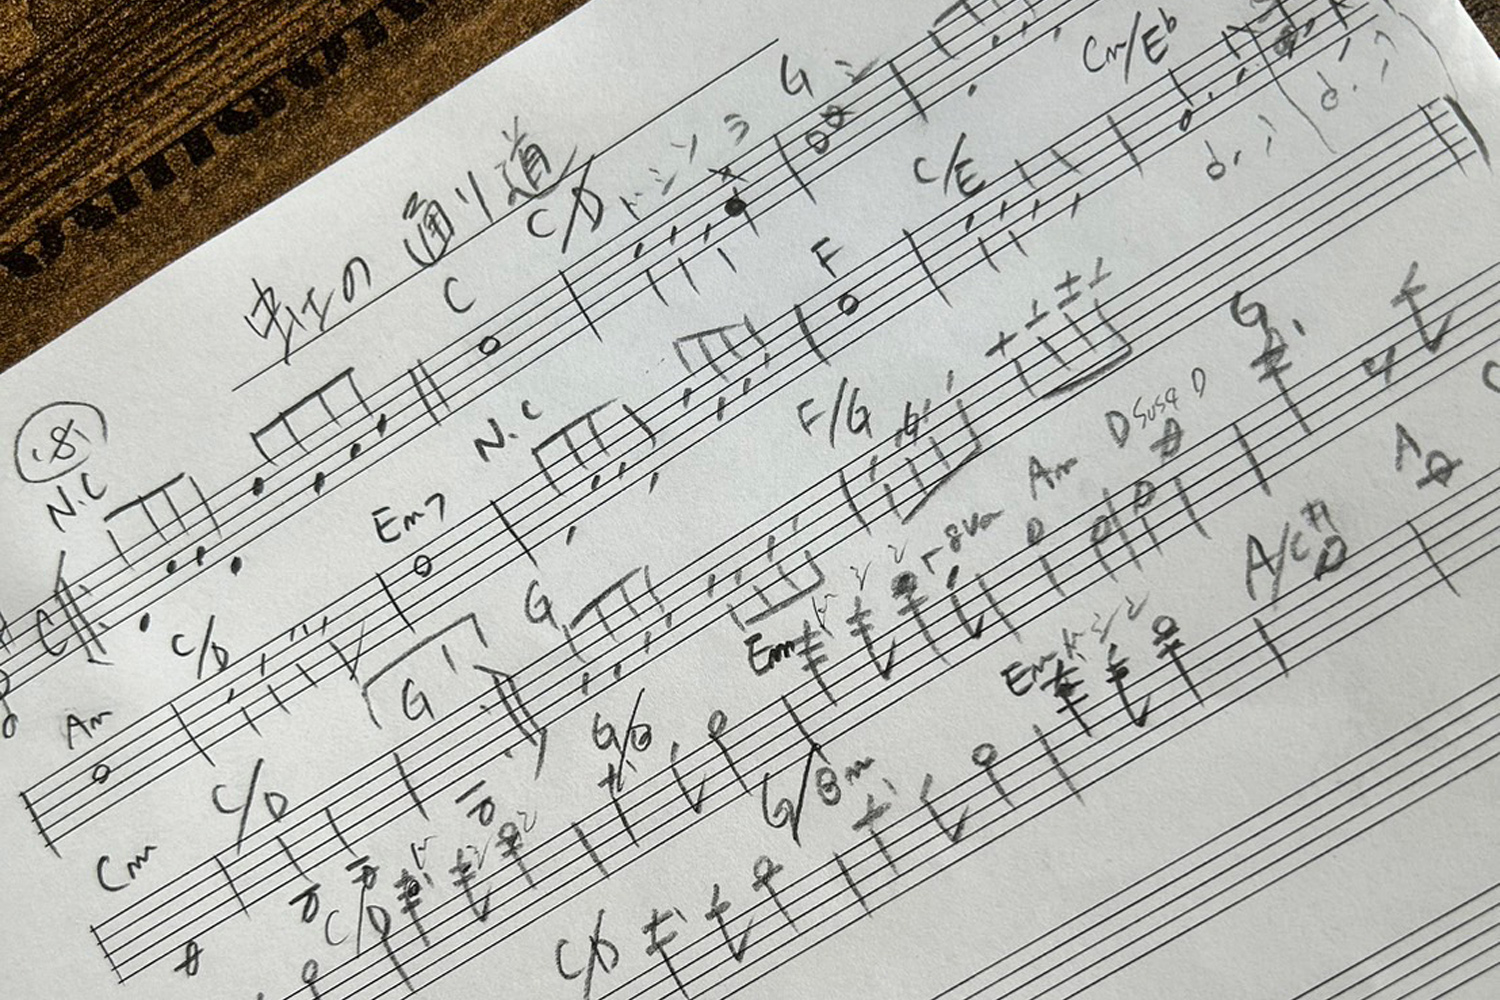 虹の通り道
8
N.C C C/D ドシソラ G シ
Am C/D Em7 N.C F C/E Cm/E♭
Cm C/D G G F/G
C/D G/B Em 8va Am Dsus4 D G
C/D G/Bm Em A/C# A